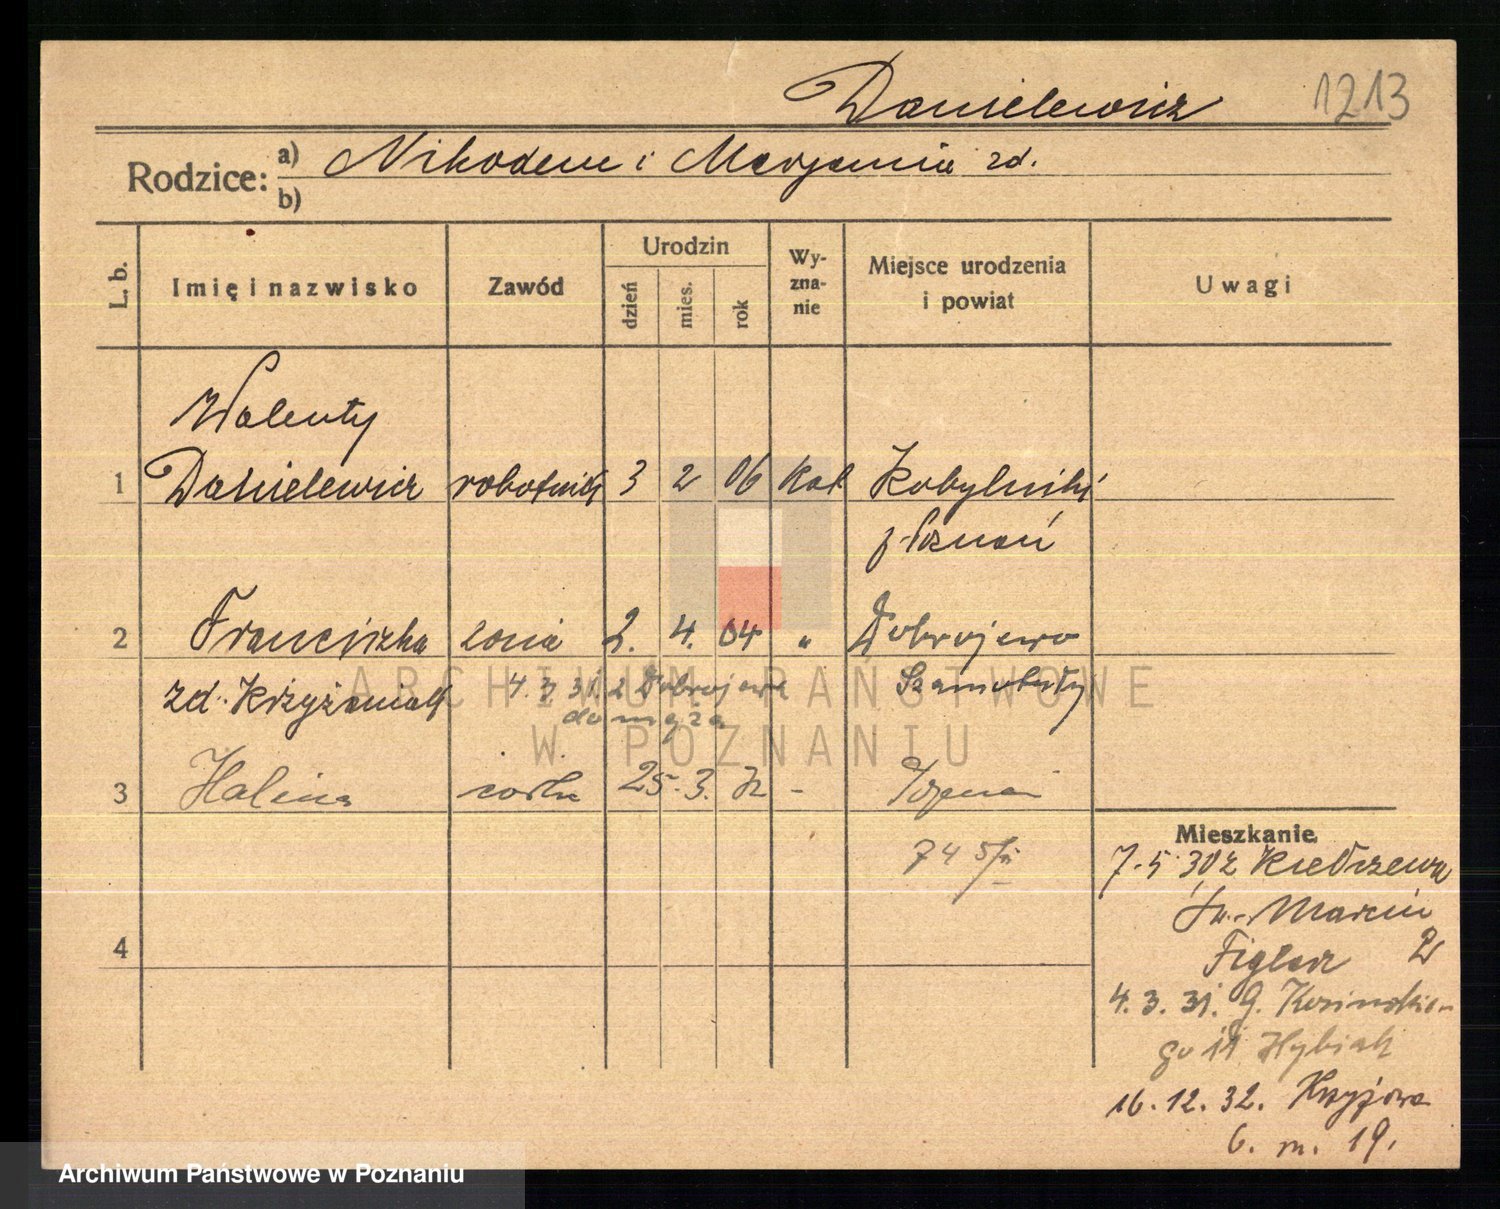 Danielewicz 1213
Rodzice: a) Nikodem i Maryanna zd.
b)
L. b. Imię i nazwisko Zawód Urodzin dzień mies. rok Wyznanie Miejsce urodzenia i powiat Uwagi
Walenty
1 Danielewicz robotnik 3 2 06 kat. Kobylniki
p. Poznań
2 Franciszka żona 2. 4. 04 " Dobrojewo
zd. Krzyżaniak 4. 3. 31. z Dobrojewa Szamotuły
do męża
3 Halina córka 25. 3. 32 - Poznań
74
4
Mieszkanie
7. 5 30 z Kiełczewa
Marcin
Figler
4. 3. 31. G. Kosińskie-
go 11 Hybiak
16. 12. 32. Krzyżowa
6. m. 19.
ARCHIWUM PAŃSTWOWE
W POZNANIU
Archiwum Państwowe w Poznaniu